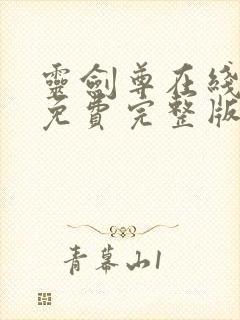 靈劍尊在綫
免費完整版
青幕山1